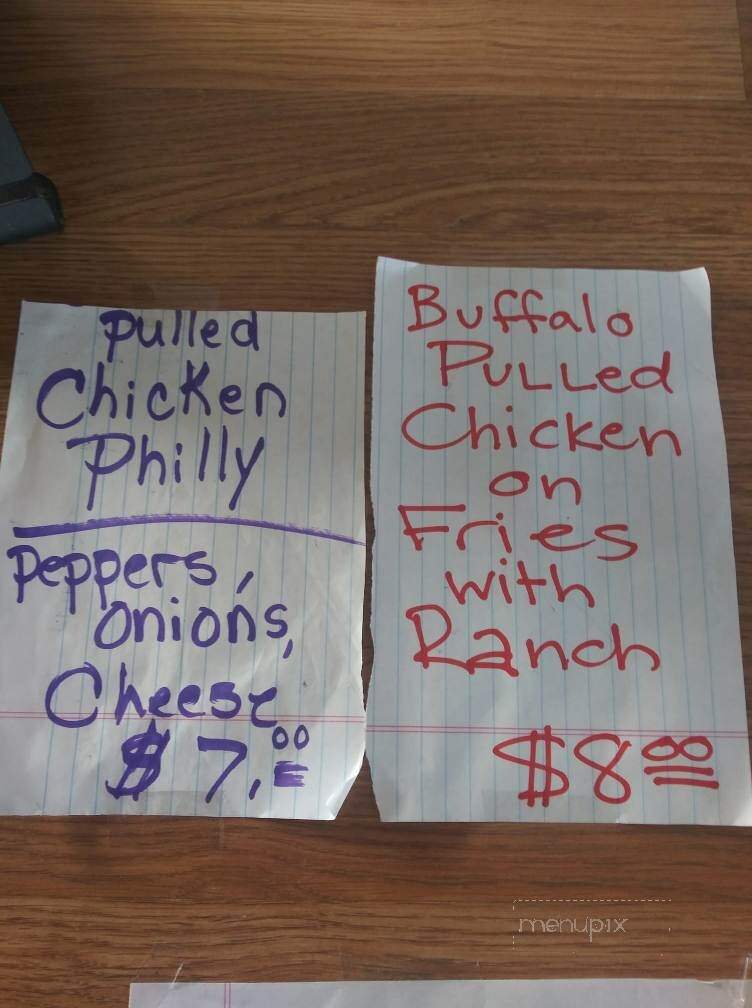 Pulled
Chicken
Philly
Peppers,
onions,
Cheese
$7.00
Buffalo
PuLLed
Chicken
on
Fries
with
Ranch
$8 00
menupix